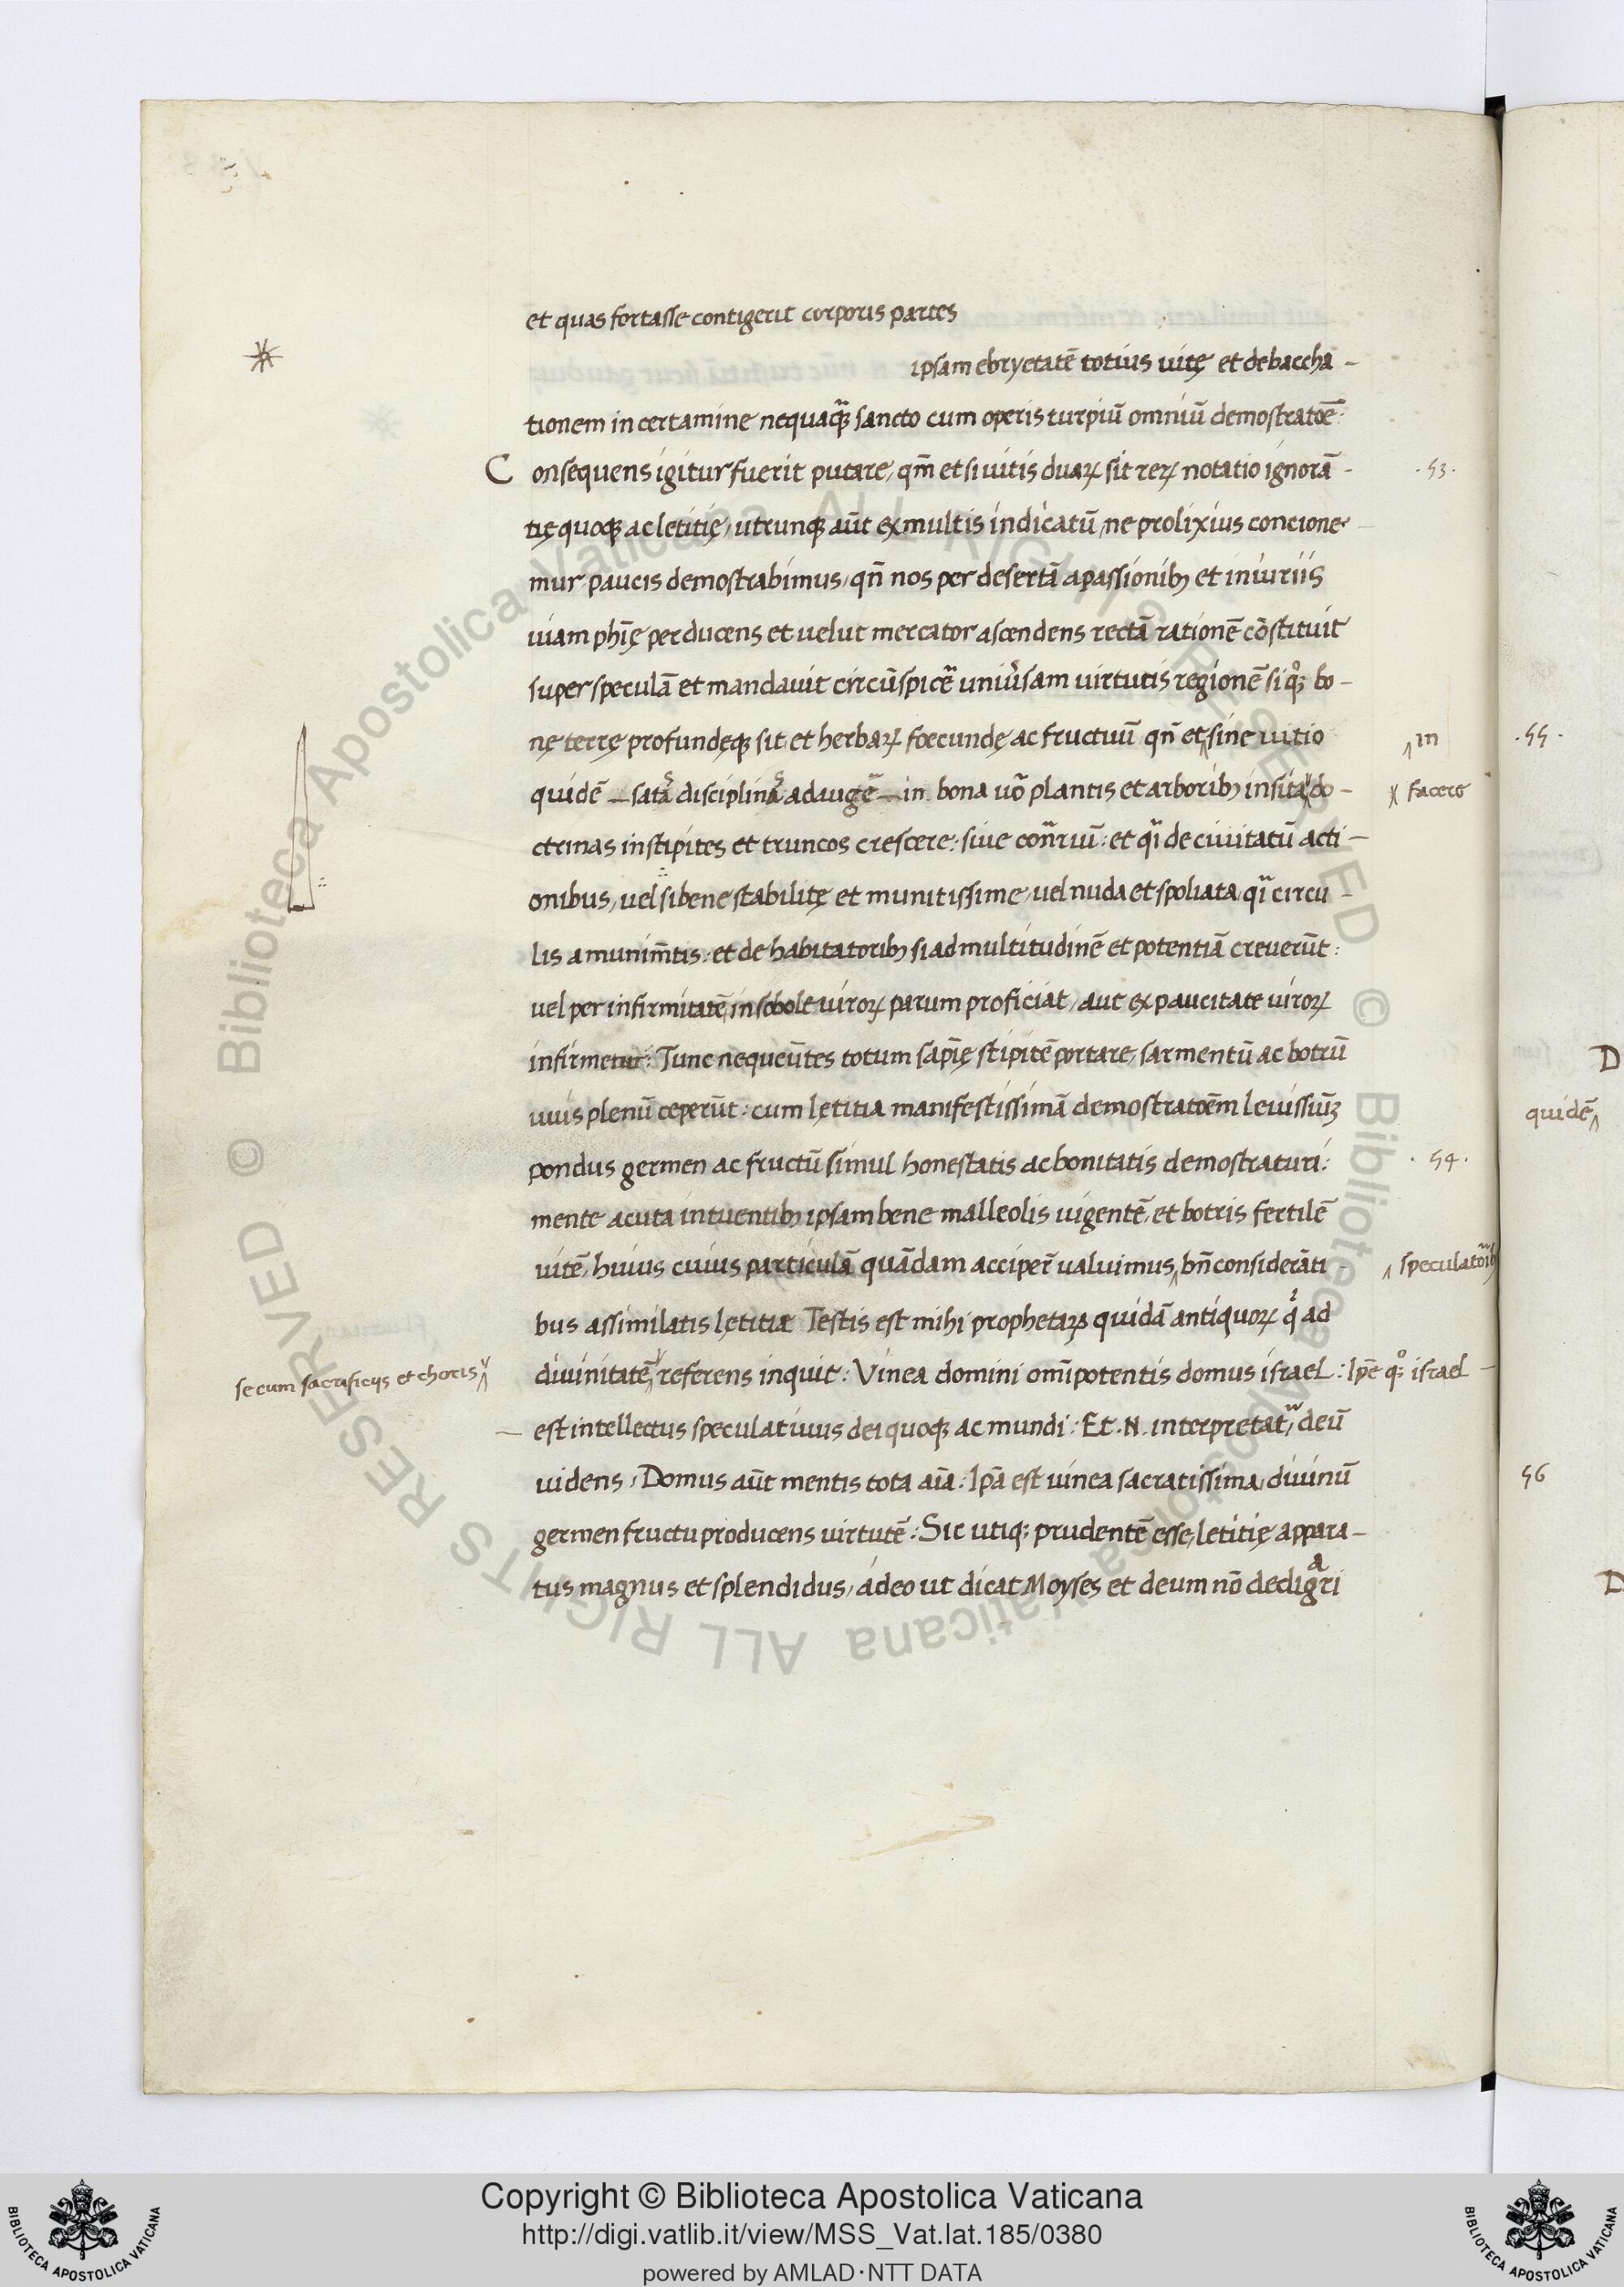 et quas fortasse contigerit corporis partes
ipsam ebryetatē totius uitę et debaccha –
tionem in certamine nequaq̄ sancto cum operis turpiū omniū demostratōē:
Consequens igitur fuerit putare, qm̄ et si uitis duaꝝ sit reꝝ notatio ignorā –
.53.
tię quoqꝫ ac letitię, utrunqꝫ aūt ex multis indicatū, ne prolixius concione
mur paucis demostrabimus, qn̄ nos per desertā a passionibꝫ et iniuriis
uiam phīę perducens et uelut mercator ascendens rectā rationē cōstituit
super speculā et mandauit circūspicē uniūsam uirtutis regionē siqͦꝫ bo –
nę terrę profundęqꝫ sit, et herbaꝝ foecundę ac fructuū qn̄ et ‸ sine uitio
‸ in
quidē — satā disciplinā adaugē — in bona uō plantis et arboribꝫ insita do –
facere
ctrinas in stipites et truncos crescere: siue conr̄riū: et qī de ciuitatū acti –
onibus, uel si bene stabilitę et munitissime, uel nuda et spoliata, qī circu –
lis a munim̄tis: et de habitatoribꝫ si ad multitudinē et potentiā creuerūt:
uel per infirmitatē in sobole uiroꝝ parum proficiat, aut ex paucitate uiroꝝ
infirmetur: Tunc nequeūtes totum sapīę stipitē portare, sarmentū ac botrū
uuis plenū ceperūt: cum lętitia manifestissimā demostratōēm leuissiūꝫ
pondus germen ac fructū simul honestatis ac bonitatis demostraturi:
. 54.
mente acuta intuentibꝫ ipsam bene malleolis uigentē, et botris fertilē
uitē, huius cuius particulā quādam acciper̄ ualuimus, ‸ bn̄ considerāti –
‸ speculatōībꝫ
bus assimilatis lętitiæ Testis est mihi prophetaꝝ quidā antiquoꝝ qͥ ad
diuinitatē ‸ referens inquit: Vinea domini omīpotentis domus israel: Ip̄e qͦꝫ israel –
se cum sacrificiis et choris ‸
– est intellectus speculatiuus dei quoqꝫ ac mundi: Et .N. interpretat̄, deū
uidens, Domus aūt mentis tota aīa: Ip̄a est uinea sacratissima, diuinū
germen fructu producens uirtutē: Sic utiqꝫ prudentē esse, letitię appara –
tus magnus et splendidus, adeo ut dicat Moyses et deum nō dedigᵃri
.55.
D
quidē ‸
56
D
Copyright © Biblioteca Apostolica Vaticana
http://digi.vatlib.it/view/MSS_Vat.lat.185/0380
powered by AMLAD·NTT DATA
BIBLIOTECA APOSTOLICA VATICANA
BIBLIOTECA APOSTOLICA VATICANA
© Biblioteca Apostolica Vaticana ALL RIGHTS RESERVED © Biblioteca Apostolica Vaticana ALL RIGHTS RESERVED